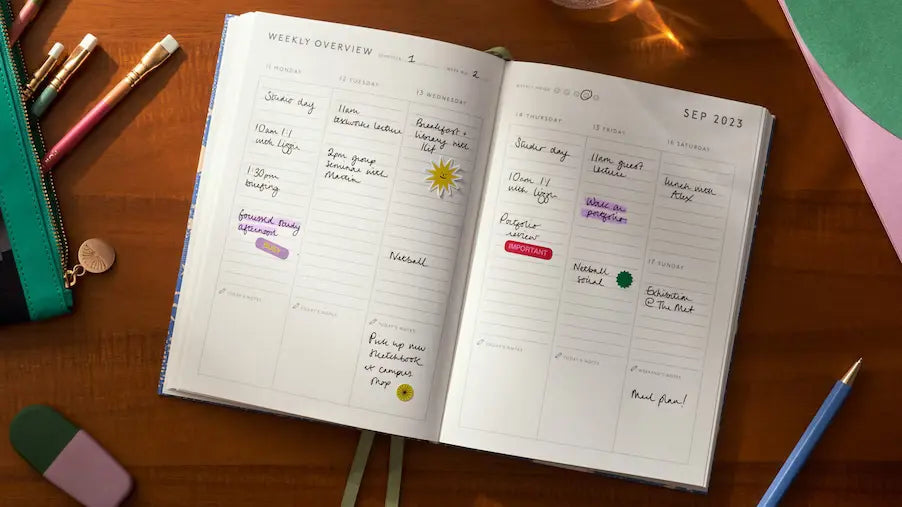 WEEKLY OVERVIEW
SEMESTER 1 WEEK NO. 2
11 MONDAY
Studio day
10am 1:1
with Lizzy
1:30pm
briefing
focused study
afternoon
BUSY
TODAY'S NOTES
12 TUESDAY
11am
textworks lecture
2pm group
seminar with
Martin
TODAY'S NOTES
13 WEDNESDAY
Breakfast +
library with
Kit
Netball
TODAY'S NOTES
Pick up new
sketchbook
at campus
shop
SEP 2023
14 THURSDAY
Studio day
10am 1:1
with Lizzy
Portfolio
review
IMPORTANT
TODAY'S NOTES
15 FRIDAY
11am guest
lecture
Work on
portfolio
Netball
social
TODAY'S NOTES
16 SATURDAY
Lunch with
Alex
17 SUNDAY
Exhibition
@ The Met
WEEKEND'S NOTES
Meal plan!